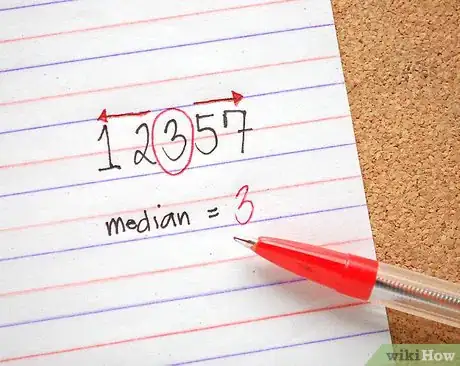 1 2 3 5 7
median = 3
wikiHow